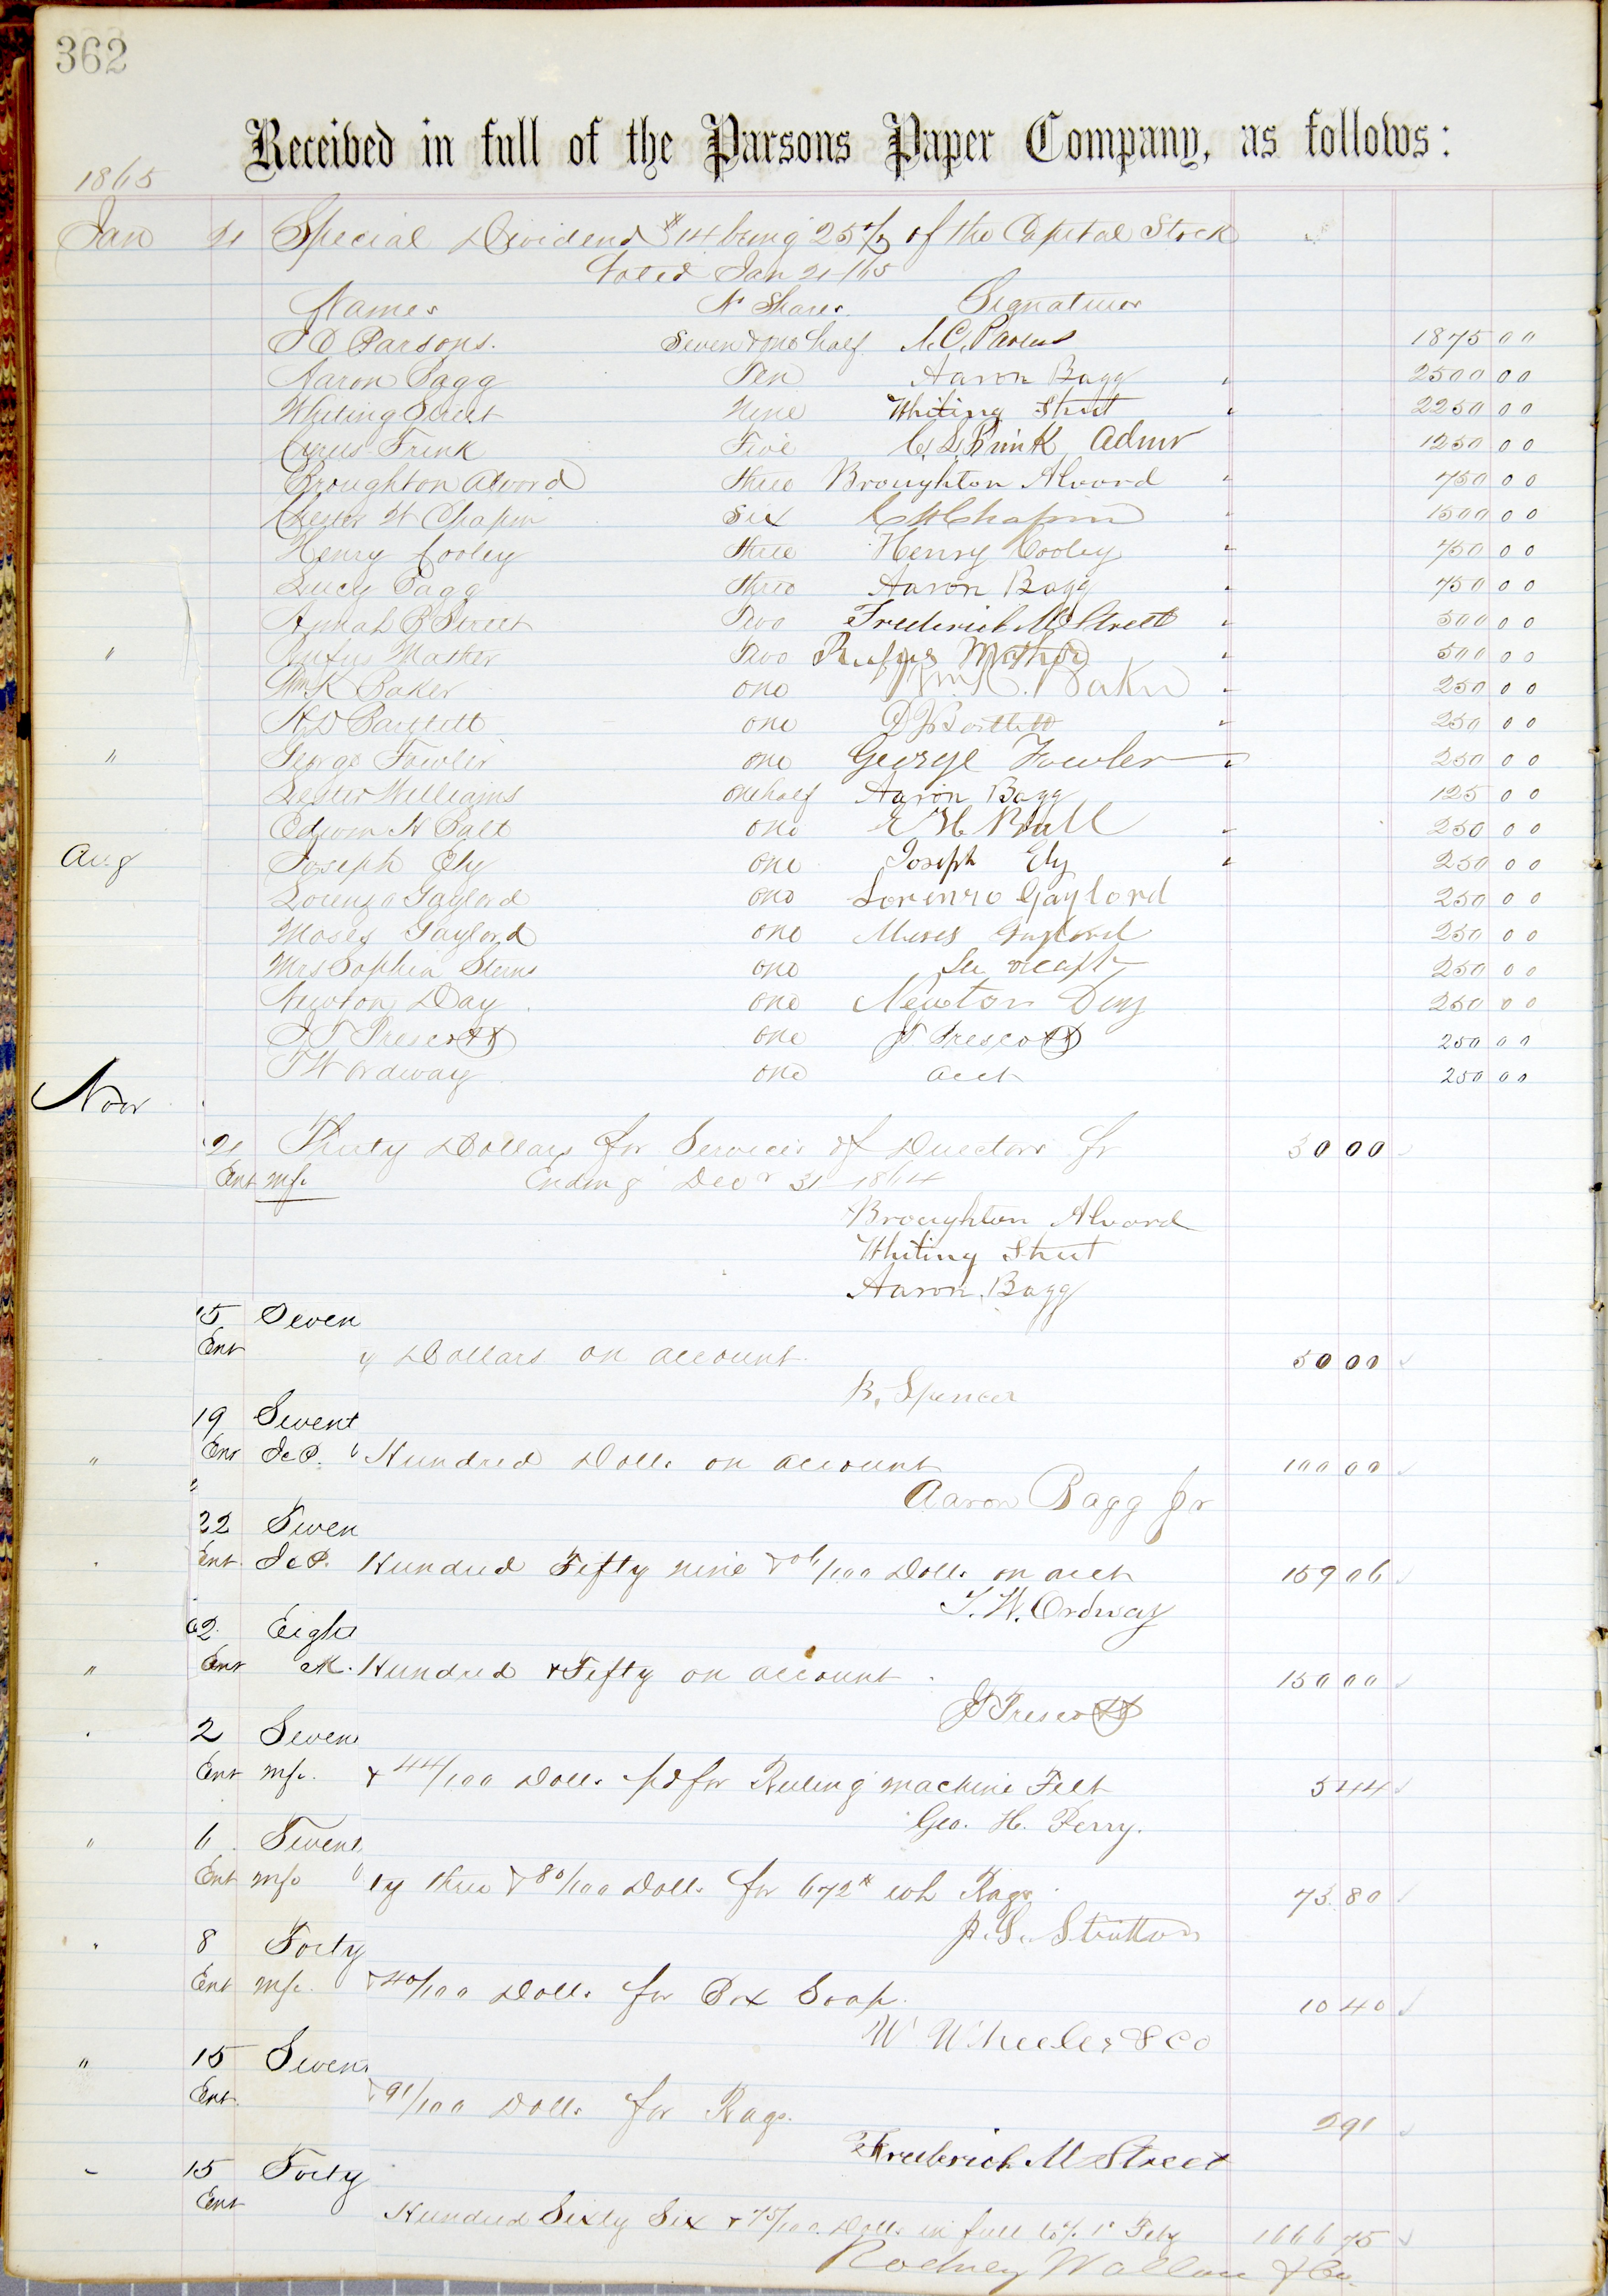 362
Received in full of the Parsons Paper Company, as follows:
1865
Jan 21 Special Dividend $14 being 25 % of the Capital Stock
Voted Jan 21 /65
Names No Shares Signatures
J D Parsons. Seven & one half 1875 00
Aaron Bagg Ten Aaron Bagg 2500 00
Whiting Street Nine Whiting Street 2250 00
Cyrus Frink Five Frink Admr 1250 00
Broughton Alvord three Broughton Alvord 750 00
Chester W Chapin Six C W Chapin 1500 00
Henry Cooley three Henry Cooley 750 00
Lucy Bagg three Aaron Bagg 750 00
Street Two Frederick M Street 500 00
" Rufus Mather Two Rufus Mather 500 00
Wm K Baker one Wm K. Baker 250 00
Bartlett one Bartlett 250 00
" George Fowler one George Fowler 250 00
Lester Williams one half Aaron Bagg 125 00
Edwin H Ball one E H Ball 250 00
Aug Joseph Ely one Joseph Ely 250 00
Lorenzo Gaylord one Lorenzo Gaylord 250 00
Moses Gaylord one Moses Gaylord 250 00
Mrs Sophia one 250 00
Newton Day one Newton Day 250 00
J T Prescott one J T Prescott 250 00
T W Ordway one acct 250 00
Nov
21 Thirty Dollars for Services of Directors for 30 00
Ent mfe Ending Decr 31 1864
Broughton Alvord
Whiting Street
Aaron Bagg
15 Seven
Ent y Dollars on account 50 00
B. Spencer
19 Sevent
" Ent Hundred Dolls on account 100 00
Aaron Bagg Jr
22 Seven
Ent Hundred Fifty nine & 06/100 Dolls on acct 159 06
T. W. Ordway
2 Eight
" Ent Hundred & Fifty on account 150 00
J T Prescott
2 Seven
Ent mfe. & 44/100 Dolls pd for Ruling machine Felt 5 44
Geo. H. Perry.
" 6 Sevent
Ent mfe ty three & 80/100 Dolls for 672# wh Rags 73 80
J. G. Stratton
8 Forty
Ent mfe. & 40/100 Dolls for Box Soap. 10 40
W Wheeler & Co
" 15 Seven
Ent & 91/100 Dolls for Rags. 2 91
Frederick M Street
15 Forty
Ent Hundred Sixty Six & 75/100 Dolls in full to 1 Feby 1666 75
Rodney Wallace & Co.